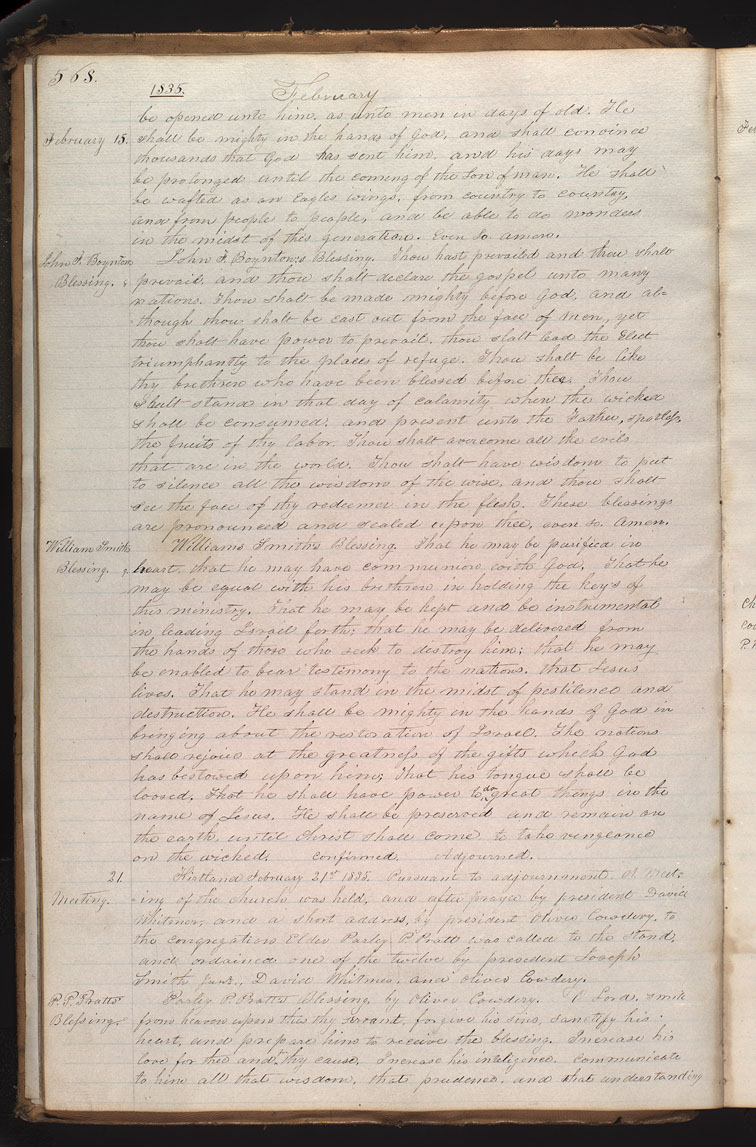 568.
1835.
February
be opened unto him, as unto men in days of old. He
February 15. shall be mighty in the hands of God, and shall convince
thousands that God has sent him, and his days may
be prolonged until the coming of the Son of man. He shall
be wafted as on Eagles wings, from country to country,
and from people to people, and be able to do wonders
in the midst of this generation. Even so amen.
John F. Boynton John F. Boyntons Blessing. Thou hast prevailed and thou shalt
Blessing. prevail, and thou shalt declare the gospel unto many
nations. Thou shalt be made mighty before God, and al=
though thou shalt be cast out from the face of men, yet
thou shalt have power to prevail. thou shalt lead the Elect
triumphantly to the places of refuge. Thou shalt be like
thy brethren who have been blessed before thee. Thou
shalt stand in that day of calamity when the wicked
shall be consumed, and present unto the Father, spotless,
the fruits of thy labor. Thou shalt overcome all the evils
that are in the world. Thou shalt have wisdom to put
to silence all the wisdom of the wise, and thou shalt
see the face of thy redeemer in the flesh. These blessings
are pronounced and sealed upon thee, even so. Amen.
William Smiths Williams Smith's Blessing. That he may be purified in
Blessing. heart, that he may have communion with God. That he
may be equal with his brethren in holding the keys of
this ministry. That he may be kept and be instrumental
in leading Israel forth; that he may be delivered from
the hands of those who seek to destroy him; that he may
be enabled to bear testimony to the nations, that Jesus
lives. That he may stand in the midst of pestilence and
destruction. He shall be mighty in the hands of God in
bringing about the restoration of Israel. The nations
shall rejoice at the greatness of the gifts which God
has bestowed upon him, That his tongue shall be
loosed. That he shall have power to do great things in the
name of Jesus. He shall be preserved and remain on
the earth, until Christ shall come to take vengeance
on the wicked. confirmed. Adjourned.
21. Kirtland February 21st 1835. Pursuant to adjournment. A Meet-
Meeting. ing of the church was held, and after prayer by president David
Whitmer, and a short address, by president Oliver Cowdery, to
the congregation Elder Parley P. Pratt was called to the stand,
and ordained one of the twelve by president Joseph
Smith Junr., David Whitmer, and Oliver Cowdery.
P. P. Pratts Parley P. Pratts Blessing, by Oliver Cowdery. O Lord, smile
Blessing. from heaven upon this thy servant, forgive his sins, sanctify his
heart, and prepare him to receive the blessing. Increase his
love for thee and thy cause. Increase his inteligence. communicate
to him all that wisdom, that prudence, and that understanding